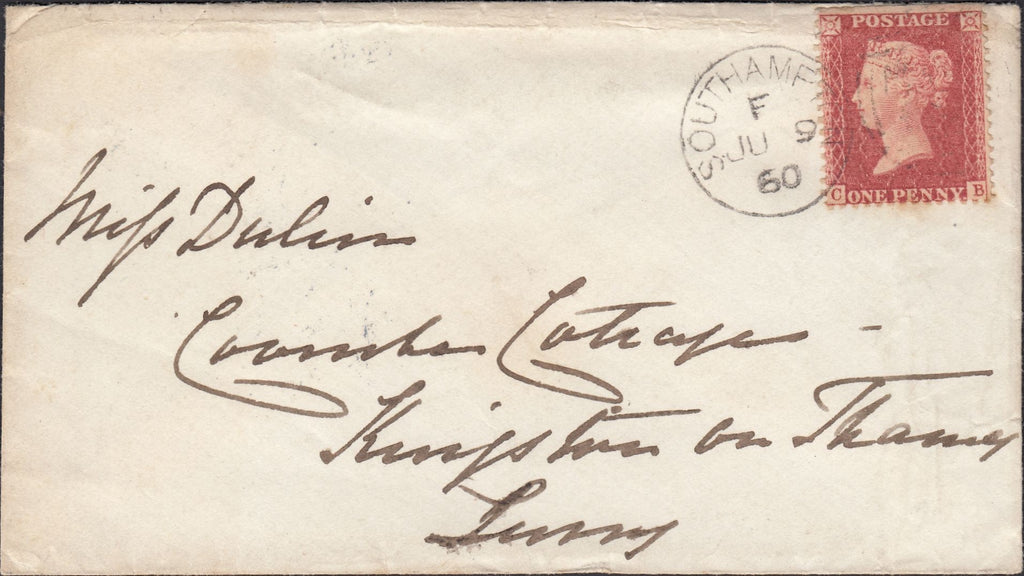 POSTAGE
SOUTHAMP
F
JU 9
60
C ONE PENNY B
Miss
Coombe Cottage
Kingston on Thames
Surrey